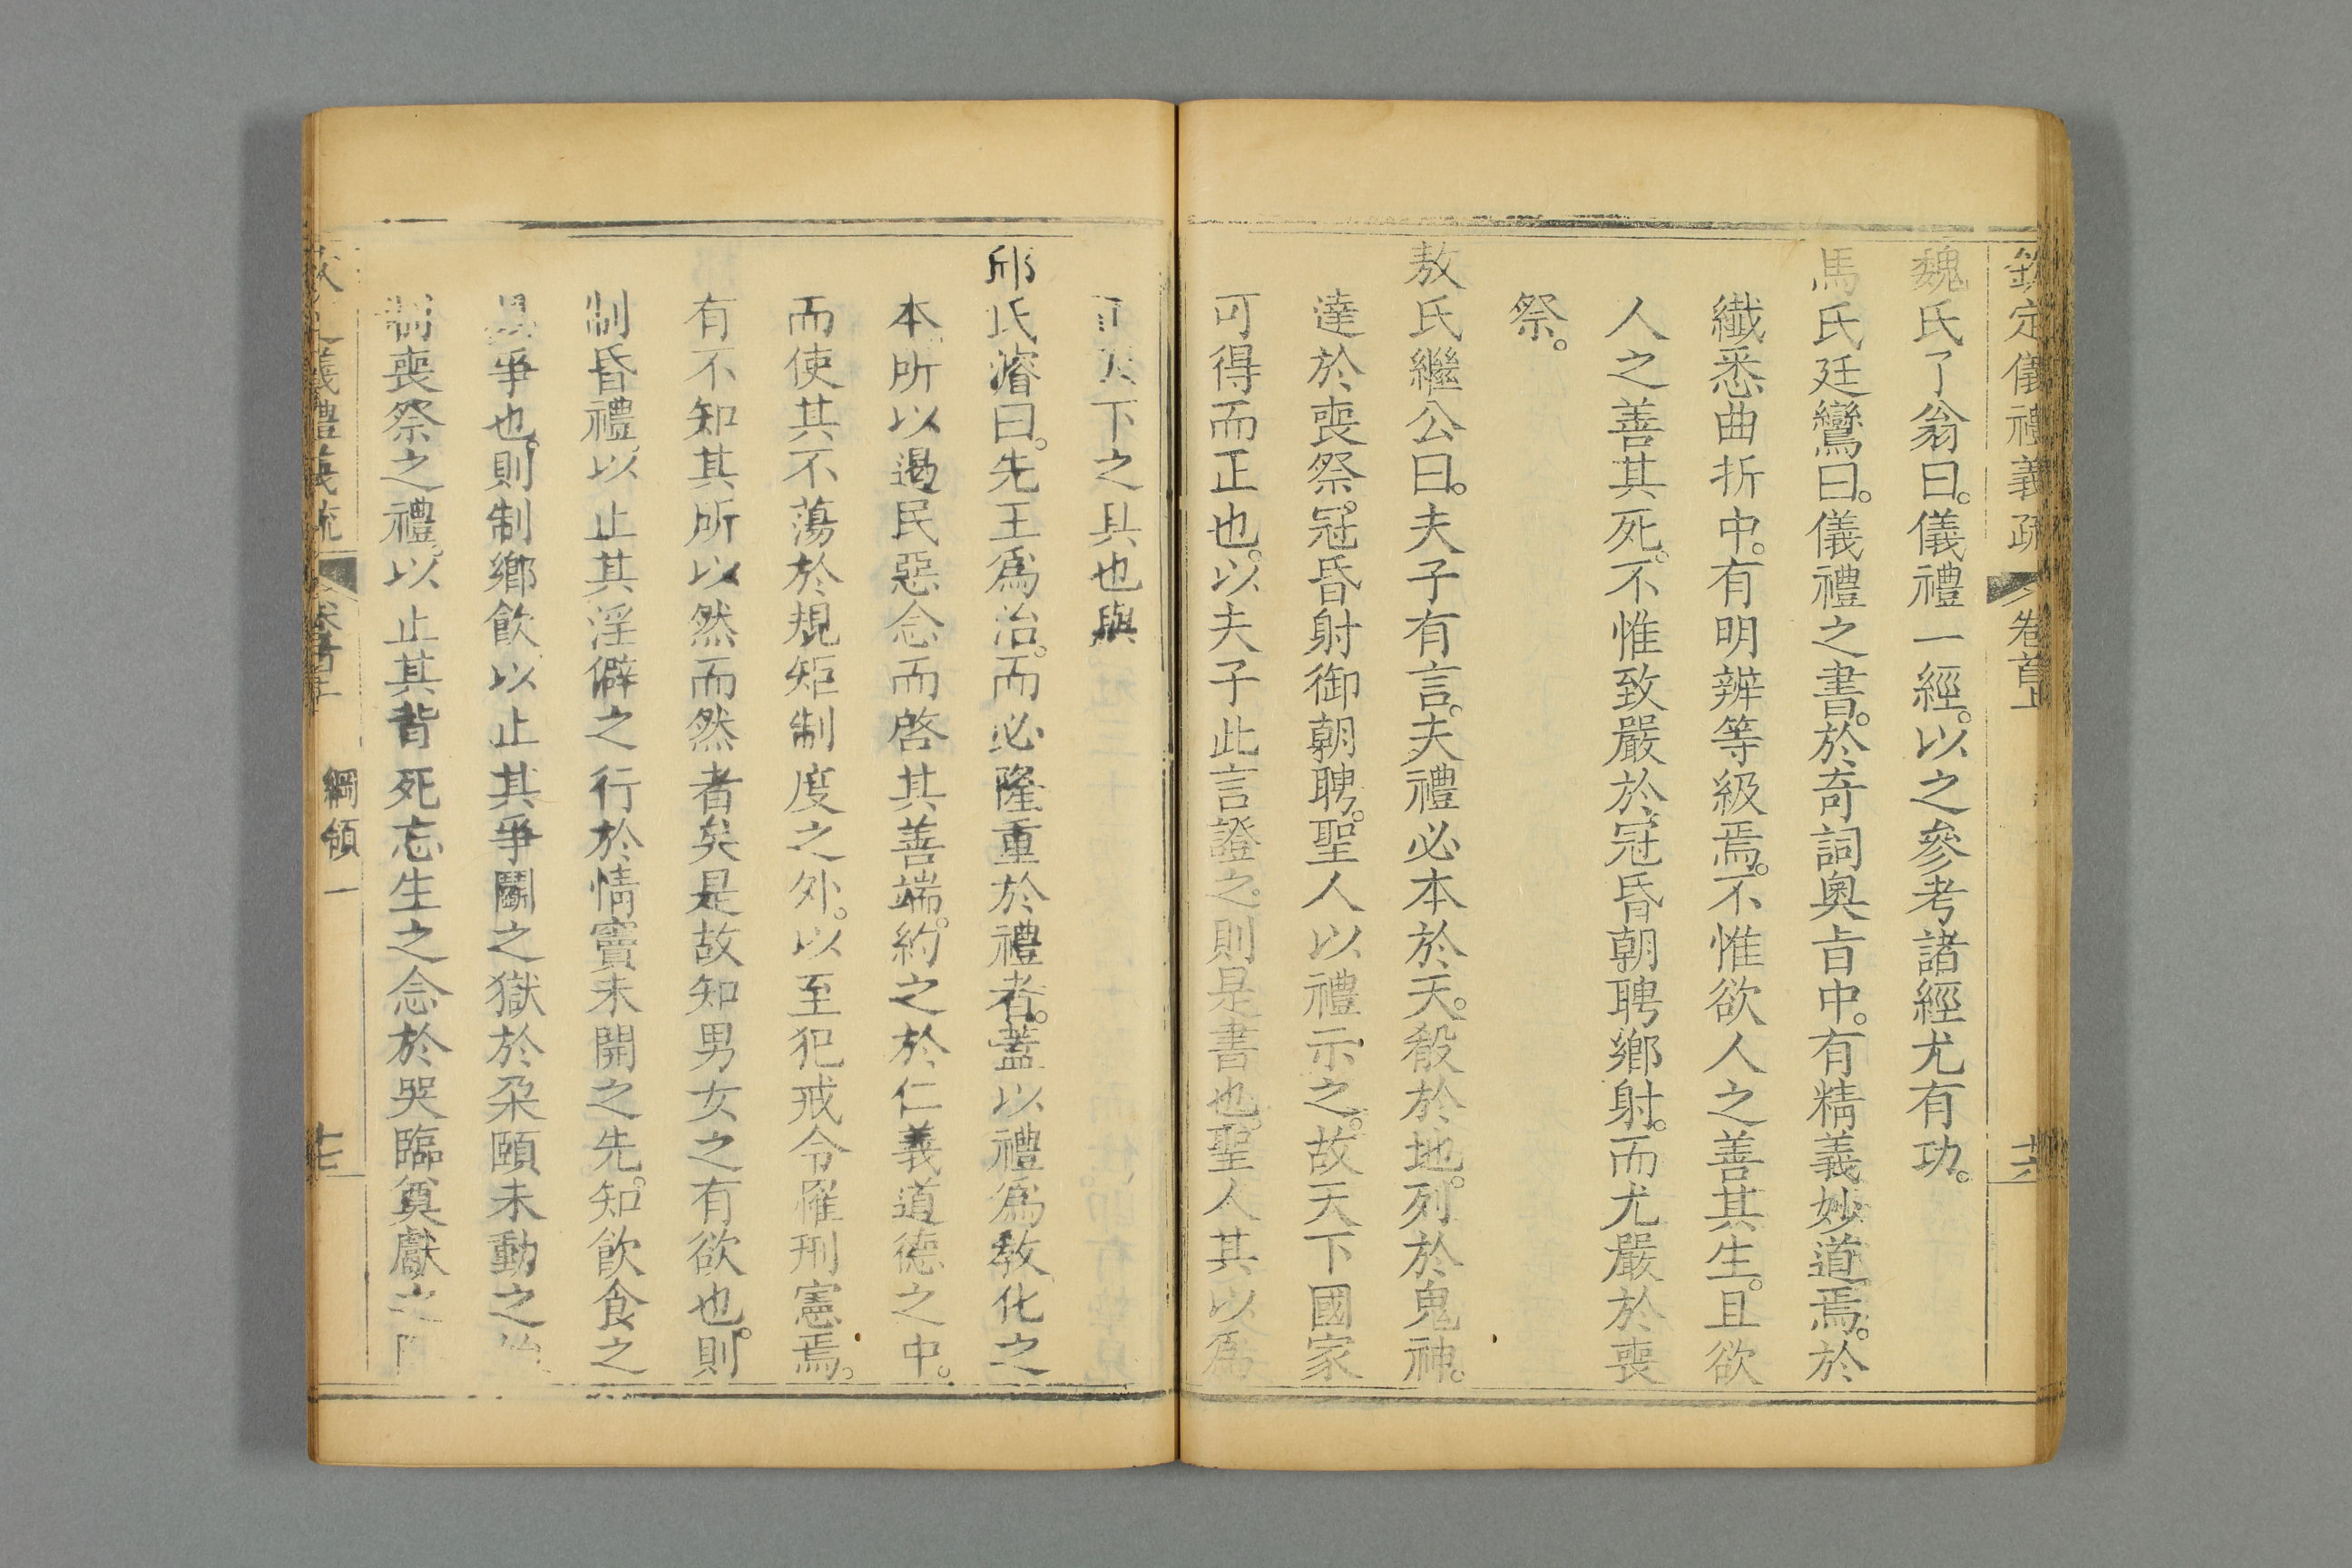 欽定儀禮義疏 卷首上 十六
魏氏了翁曰。儀禮一經。以之參考諸經尤有功。
馬氏廷鸞曰。儀禮之書。於奇詞奧旨中。有精義妙道焉。於
纎悉曲折中。有明辨等級焉。不惟欲人之善其生。且欲
人之善其死。不惟致嚴於冠昏朝聘鄉射。而尤嚴於喪
祭。
敖氏繼公曰。夫子有言。夫禮必本於天。殽於地。列於鬼神。
達於喪祭。冠昏射御朝聘。聖人以禮示之。故天下國家
可得而正也。以夫子此言證之。則是書也。聖人其以爲
天下之具也與
邱氏濬曰。先王爲治。而必隆重於禮者。葢以禮爲教化之
本。所以遏民惡念而啓其善端。約之於仁義道德之中。
而使其不蕩於規矩制度之外。以至犯戒令罹刑憲焉。
有不知其所以然而然者矣是故知男女之有欲也。則
制昏禮。以止其淫僻之行於情竇未開之先。知飲食之
爭也。則制鄉飲以止其爭鬭之獄於朶頤未動之
制喪祭之禮。以止其背死忘生之念於哭臨奠獻之
儀禮義疏 卷首上 綱領一 十七